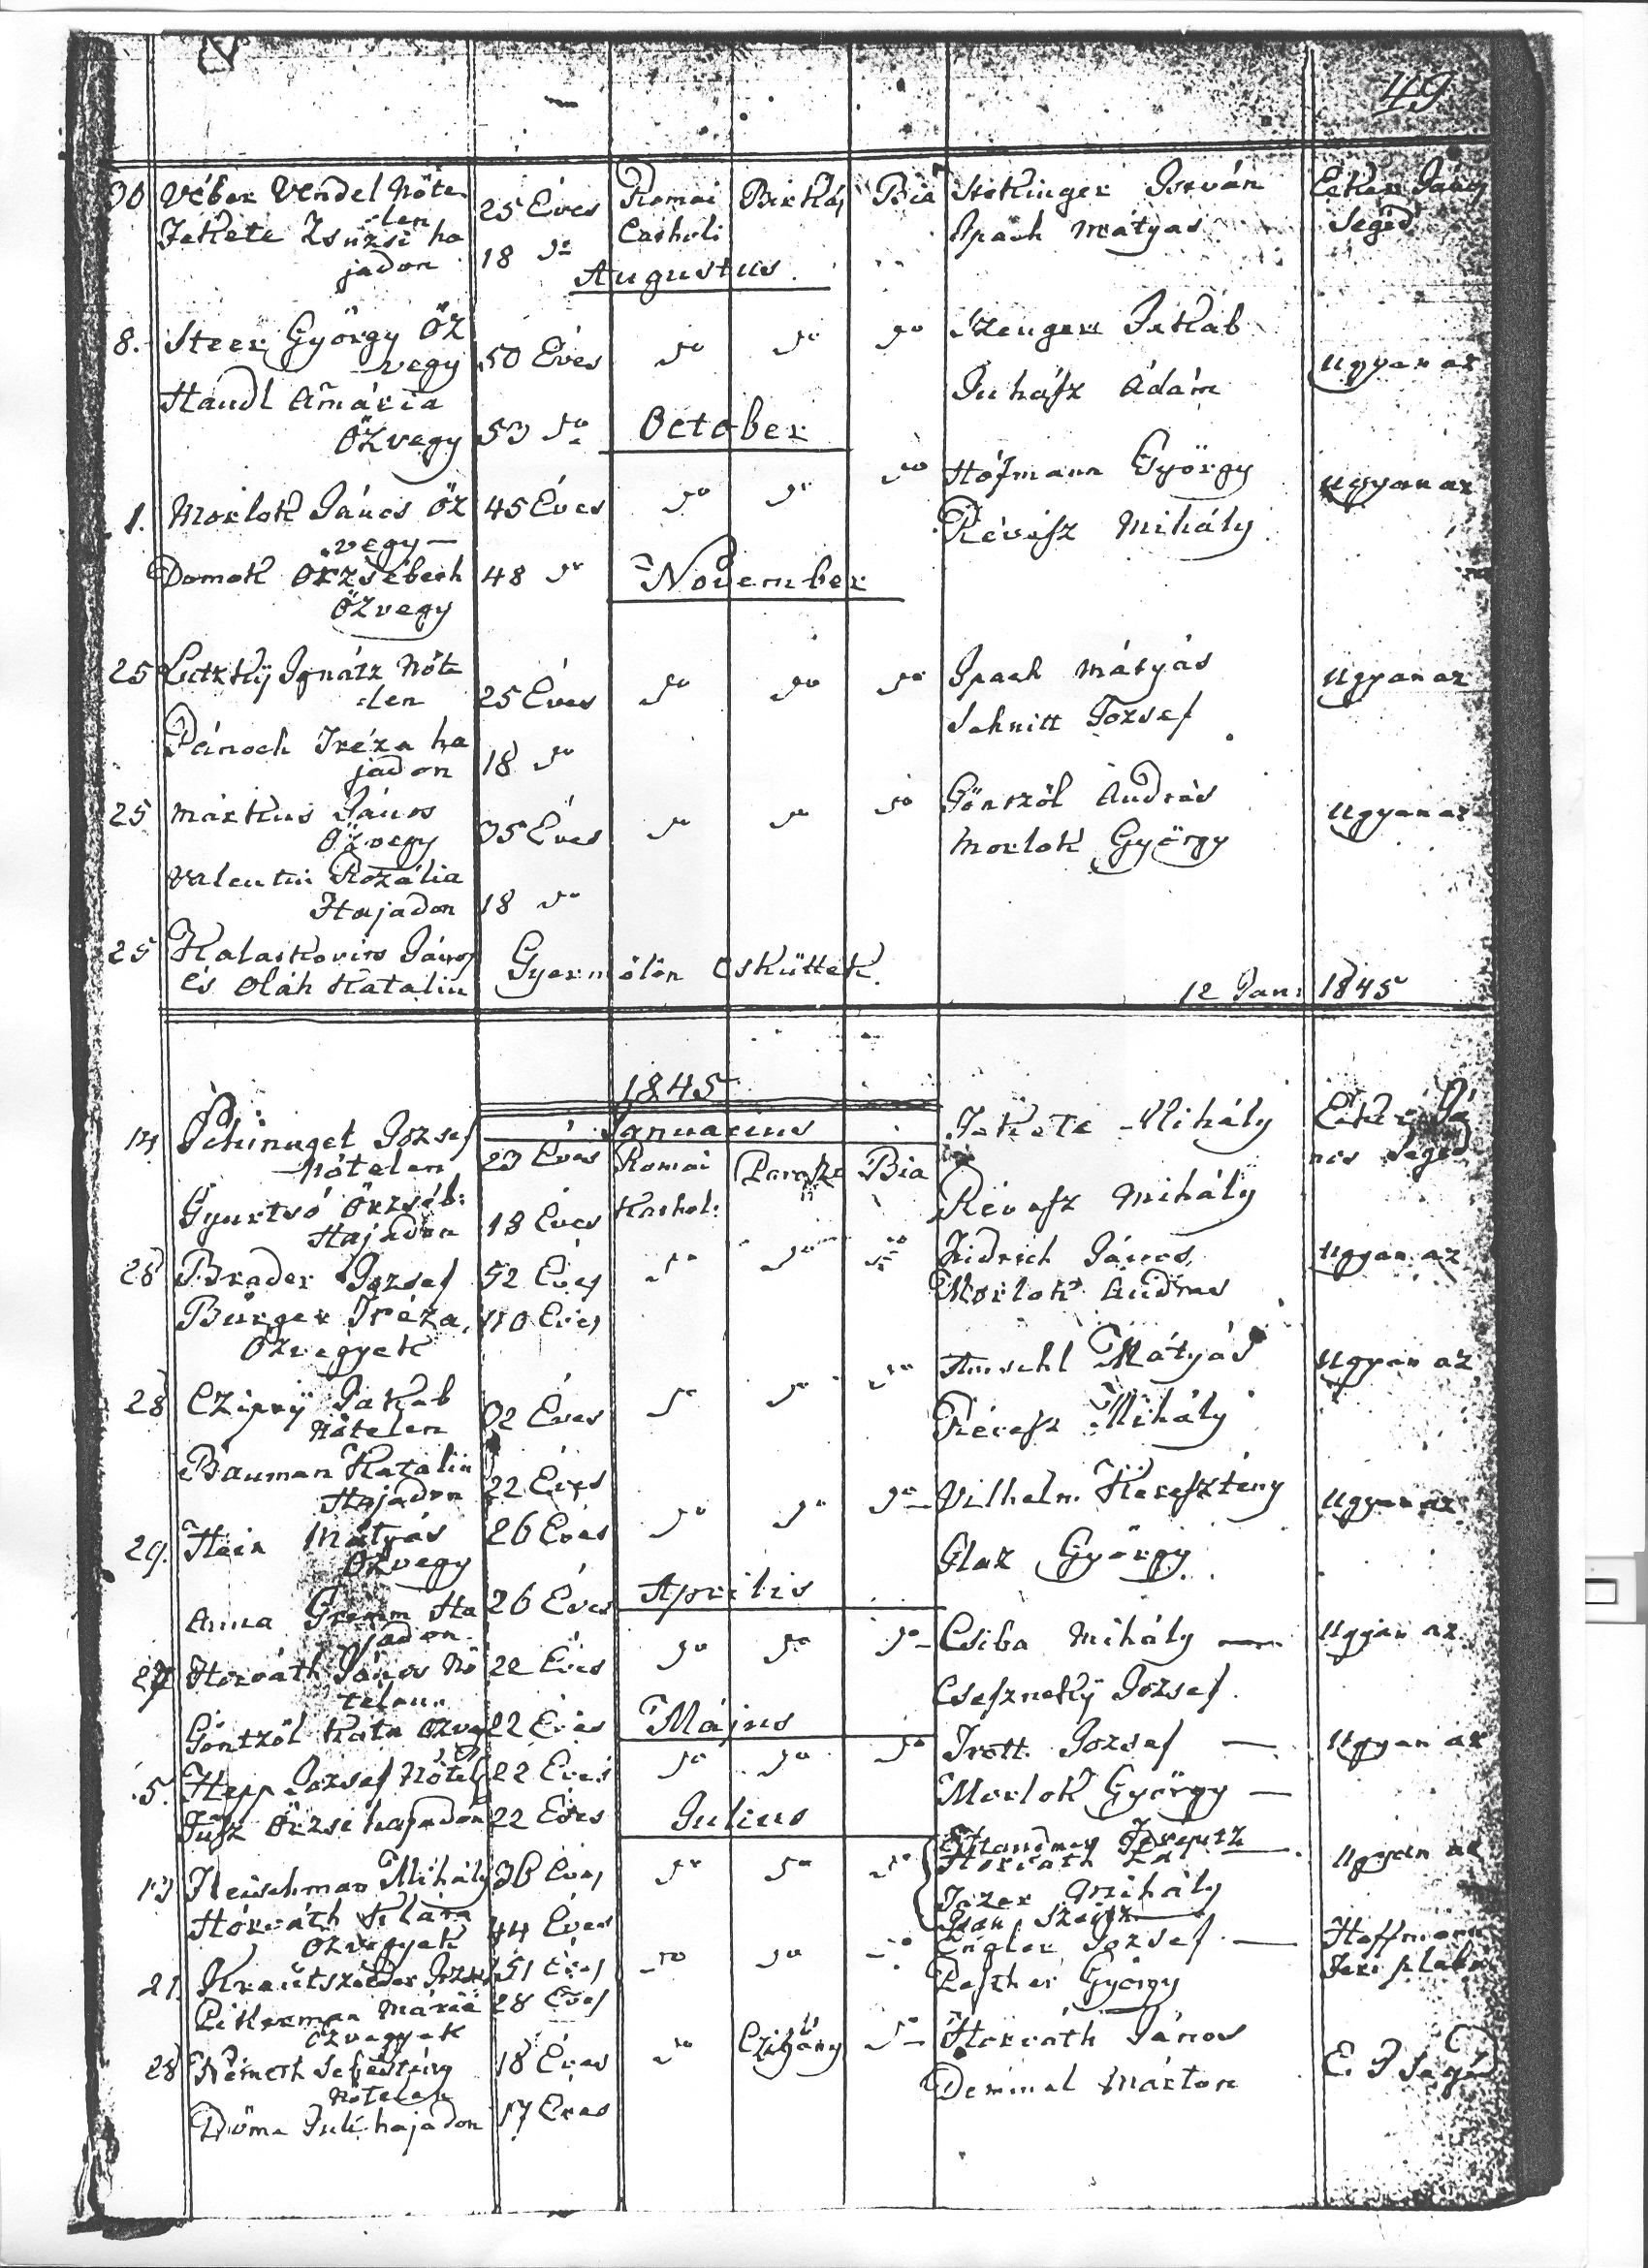 49
30 Véber Vendel Nőte 25 Éves Romai Birkás Bia Stokinger István Erker János
len Catholi Segéd
Fekete Zsuzsi ha 18 do Spach Mátyás
jadon
Augustus
8. Steer György Öz 50 Éves do do do Szenger Jakab Ugyan az
vegy Juhász Ádám
Handl Mária 53 do
Özvegy
October
1. Morlok János Öz 45 Éves do do do Hofmann György Ugyan az
vegy Révész Mihály
Domok Örzsébeth 48 do
Özvegy
November
25 Lutzky Ignátz Nőte 25 Éves do do do Spach Mátyás Ugyan az
len Schnitt József
Pánoch Tréza ha 18 do
jadon
25 Márkus János 35 Éves do do do Göntzöl András Ugyan az
Özvegy Morlok György
Valentin Rozália 18 do
Hajadon
25 Kalaikovits János
és Oláh Katalin Gyermölön esküttek.
12 Jan: 1845
1845
Januarius
Schinagel József 23 Éves Romai Paraszt Bia Fekete Mihály
Nőtelen Kathol: Révész Mihály nos Segéd
Gyurtsó Örzséb: 18 Éves
Hajadon
28 Brader József 52 Éves do do do Fidrich János Ugyan az
Bürger Tréza 40 Éves Morlok András
Özvegyek
28 Czipry Jakab 32 Éves do do do Mátyás Ugyan az
Nőtelen Révész Mihály
Bauman Katalin 22 Éves
Hajadon
29. Hein Mátyás 26 Éves do do do Vilhelm Keresztény Ugyan az
Özvegy Glaz György
Anna Gremm Ha 26 Éves
jadon
Aprilis
27 Horváth János Nő 22 Éves do do do Csiba Mihály Ugyan az
telen Cseszneky József
Göntzöl Kata Özvegy 22 Éves
Május
5. Hepp József Nőtel 22 Éves do do do Trott József Ugyan az
Jusz Örzse hajadon 22 Éves Morlok György
Julius
13 Fleischman Mihály 36 Éves do do do Horváth Ugyan az
Hórváth Klára 44 Éves Mihály
Özvegyek
21. József 51 Éves do do do Engler József Hoffmann
Mária 28 Éves György
Özvegyek
28 Németh Sebestény 18 Éves do Czigány do Horváth János E. J Segéd
Nőtelen Demmel Márton
Döme Juli hajadon 17 Éves